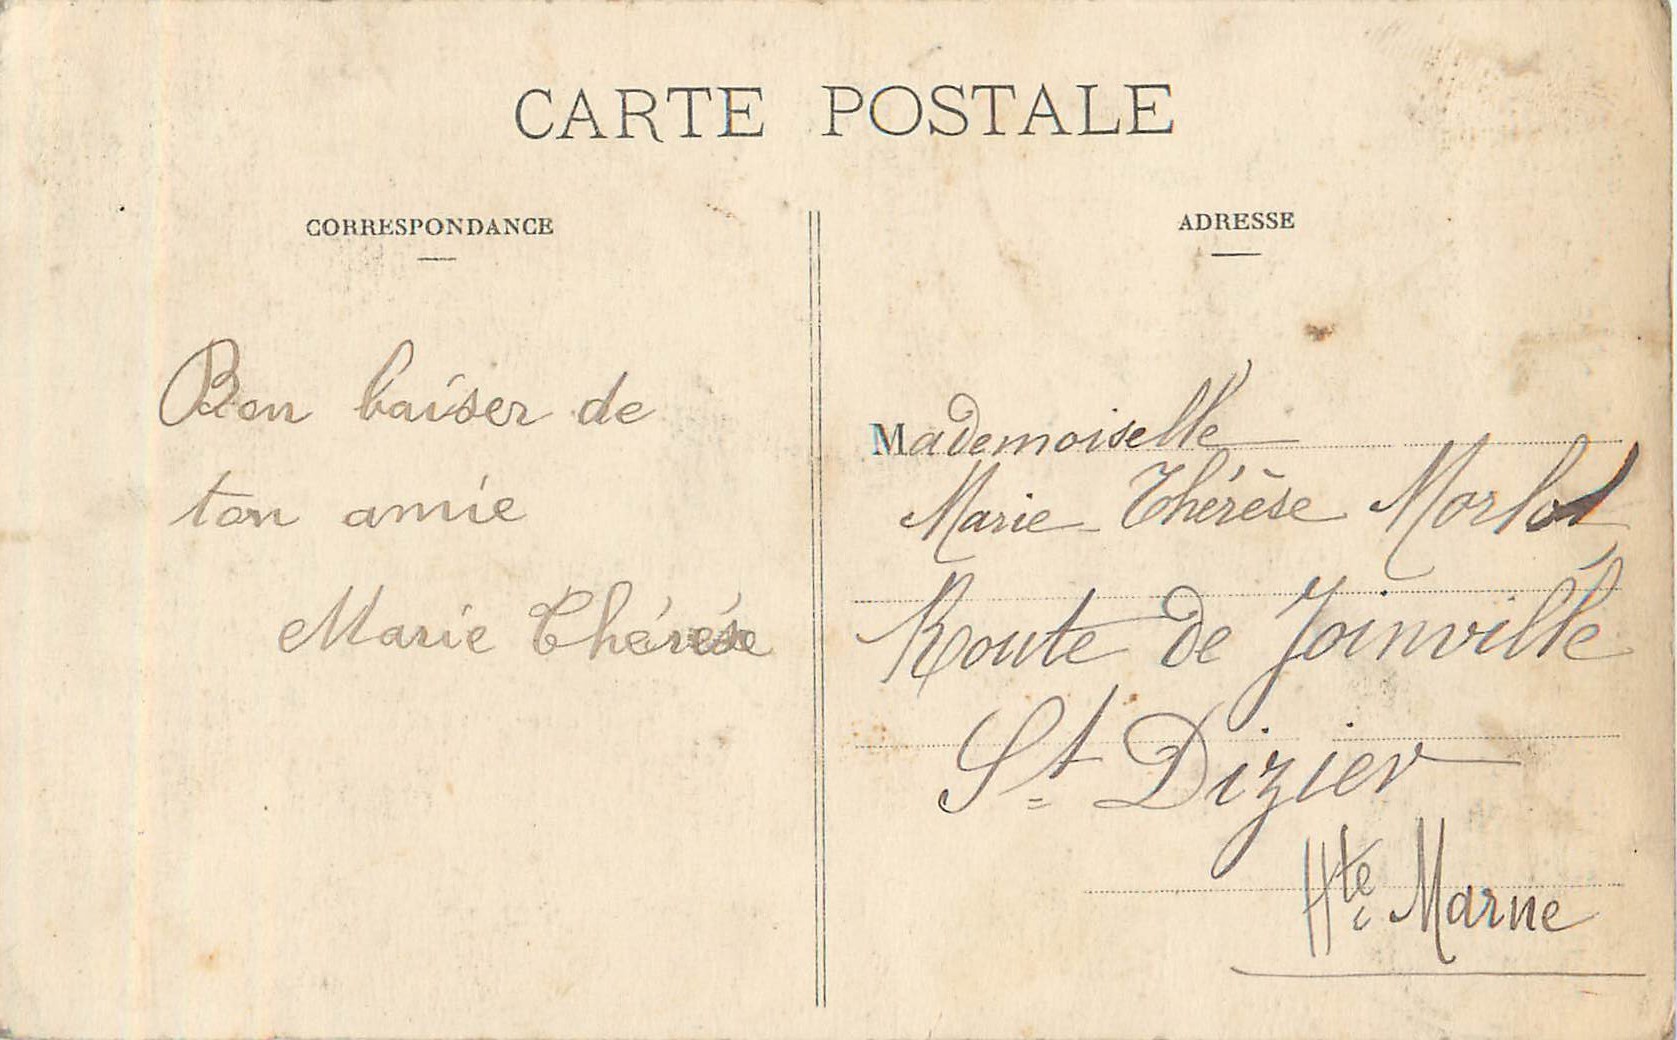 CARTE POSTALE
CORRESPONDANCE
Bon baiser de
ton amie
Marie Thérèse
ADRESSE
Mademoiselle
Marie Thérèse Morlot
Route de Joinville
St Dizier
Hte Marne